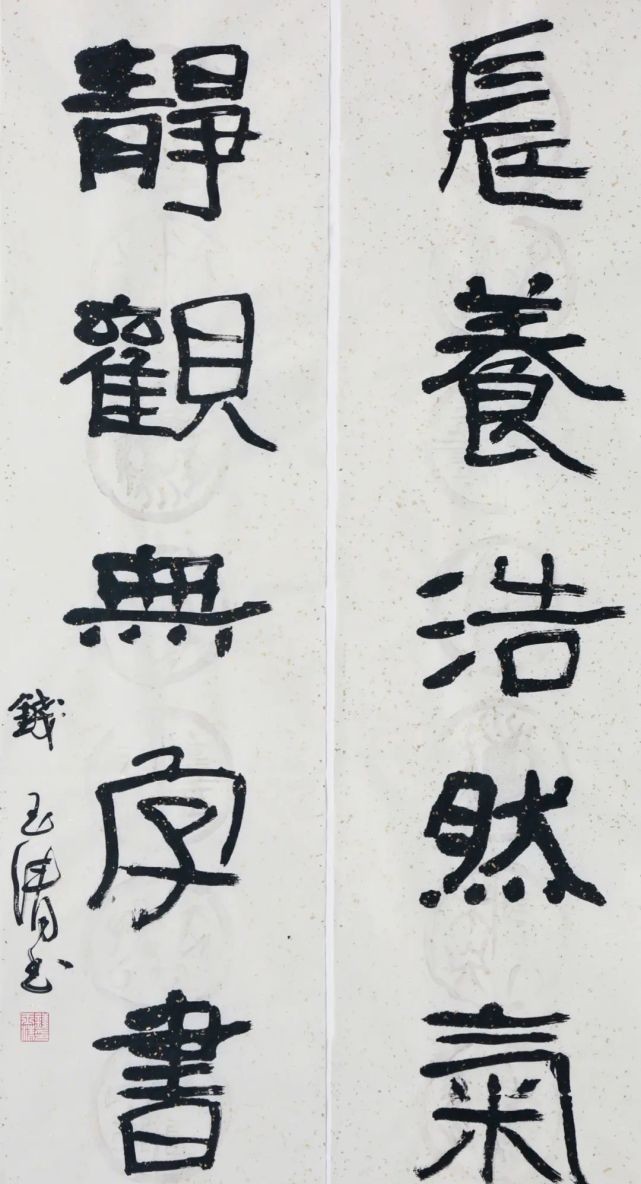 長養浩然氣
靜觀無字書
錢玉清书